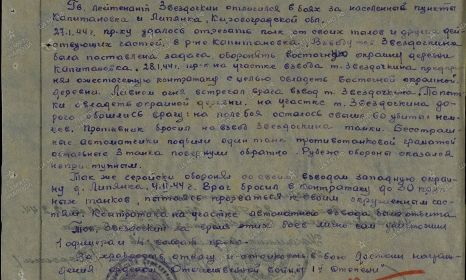 Гв. лейтенант Звездочкин отличился в боях за населенные пункты
Капитановка и Липянка, Кировоградской обл.
27.1.44г. пр-ку удалось отрезать полк от своих тылов и других дей-
ствующих частей, в р-не Капитановка. Взводу т. Звездочкина
была поставлена задача оборонять восточную окраину деревни
Капитановка. 28.1.44г. пр-к на участке взвода т. Звездочкина предпри-
нял ожесточенную контратаку с целью овладеть восточной окраиной
деревни. Лавиной огня встретил врага взвод т. Звездочкина. Попытки
овладеть окраиной деревни, на участке т. Звездочкина до-
рого обошлись врагу: на поле боя осталось свыше 60 убитых нем-
цев. Противник бросил на взвод Звездочкина танки. Бесстраш-
ные автоматчики подбили один танк противотанковой гранатой
остальные 3 танка повернули обратно. Рубеж обороны оказался
неприступным.
Так же геройски оборонял со своим взводом западную окраину
д. Липянка, 9.11.44г. Враг бросил в контратаку до 30
танков, пытаясь прорваться к своим окруженным час-
тям. Контратака на участке автоматного взвода была отбита.
Тов. Звездочкин за время этих боев лично сам уничтожил
1 офицера и солдат пр-ка.
За храбрость отвагу и стойкость в бою достоин награж-
дения орденом "Отечественной войны 1й степени"